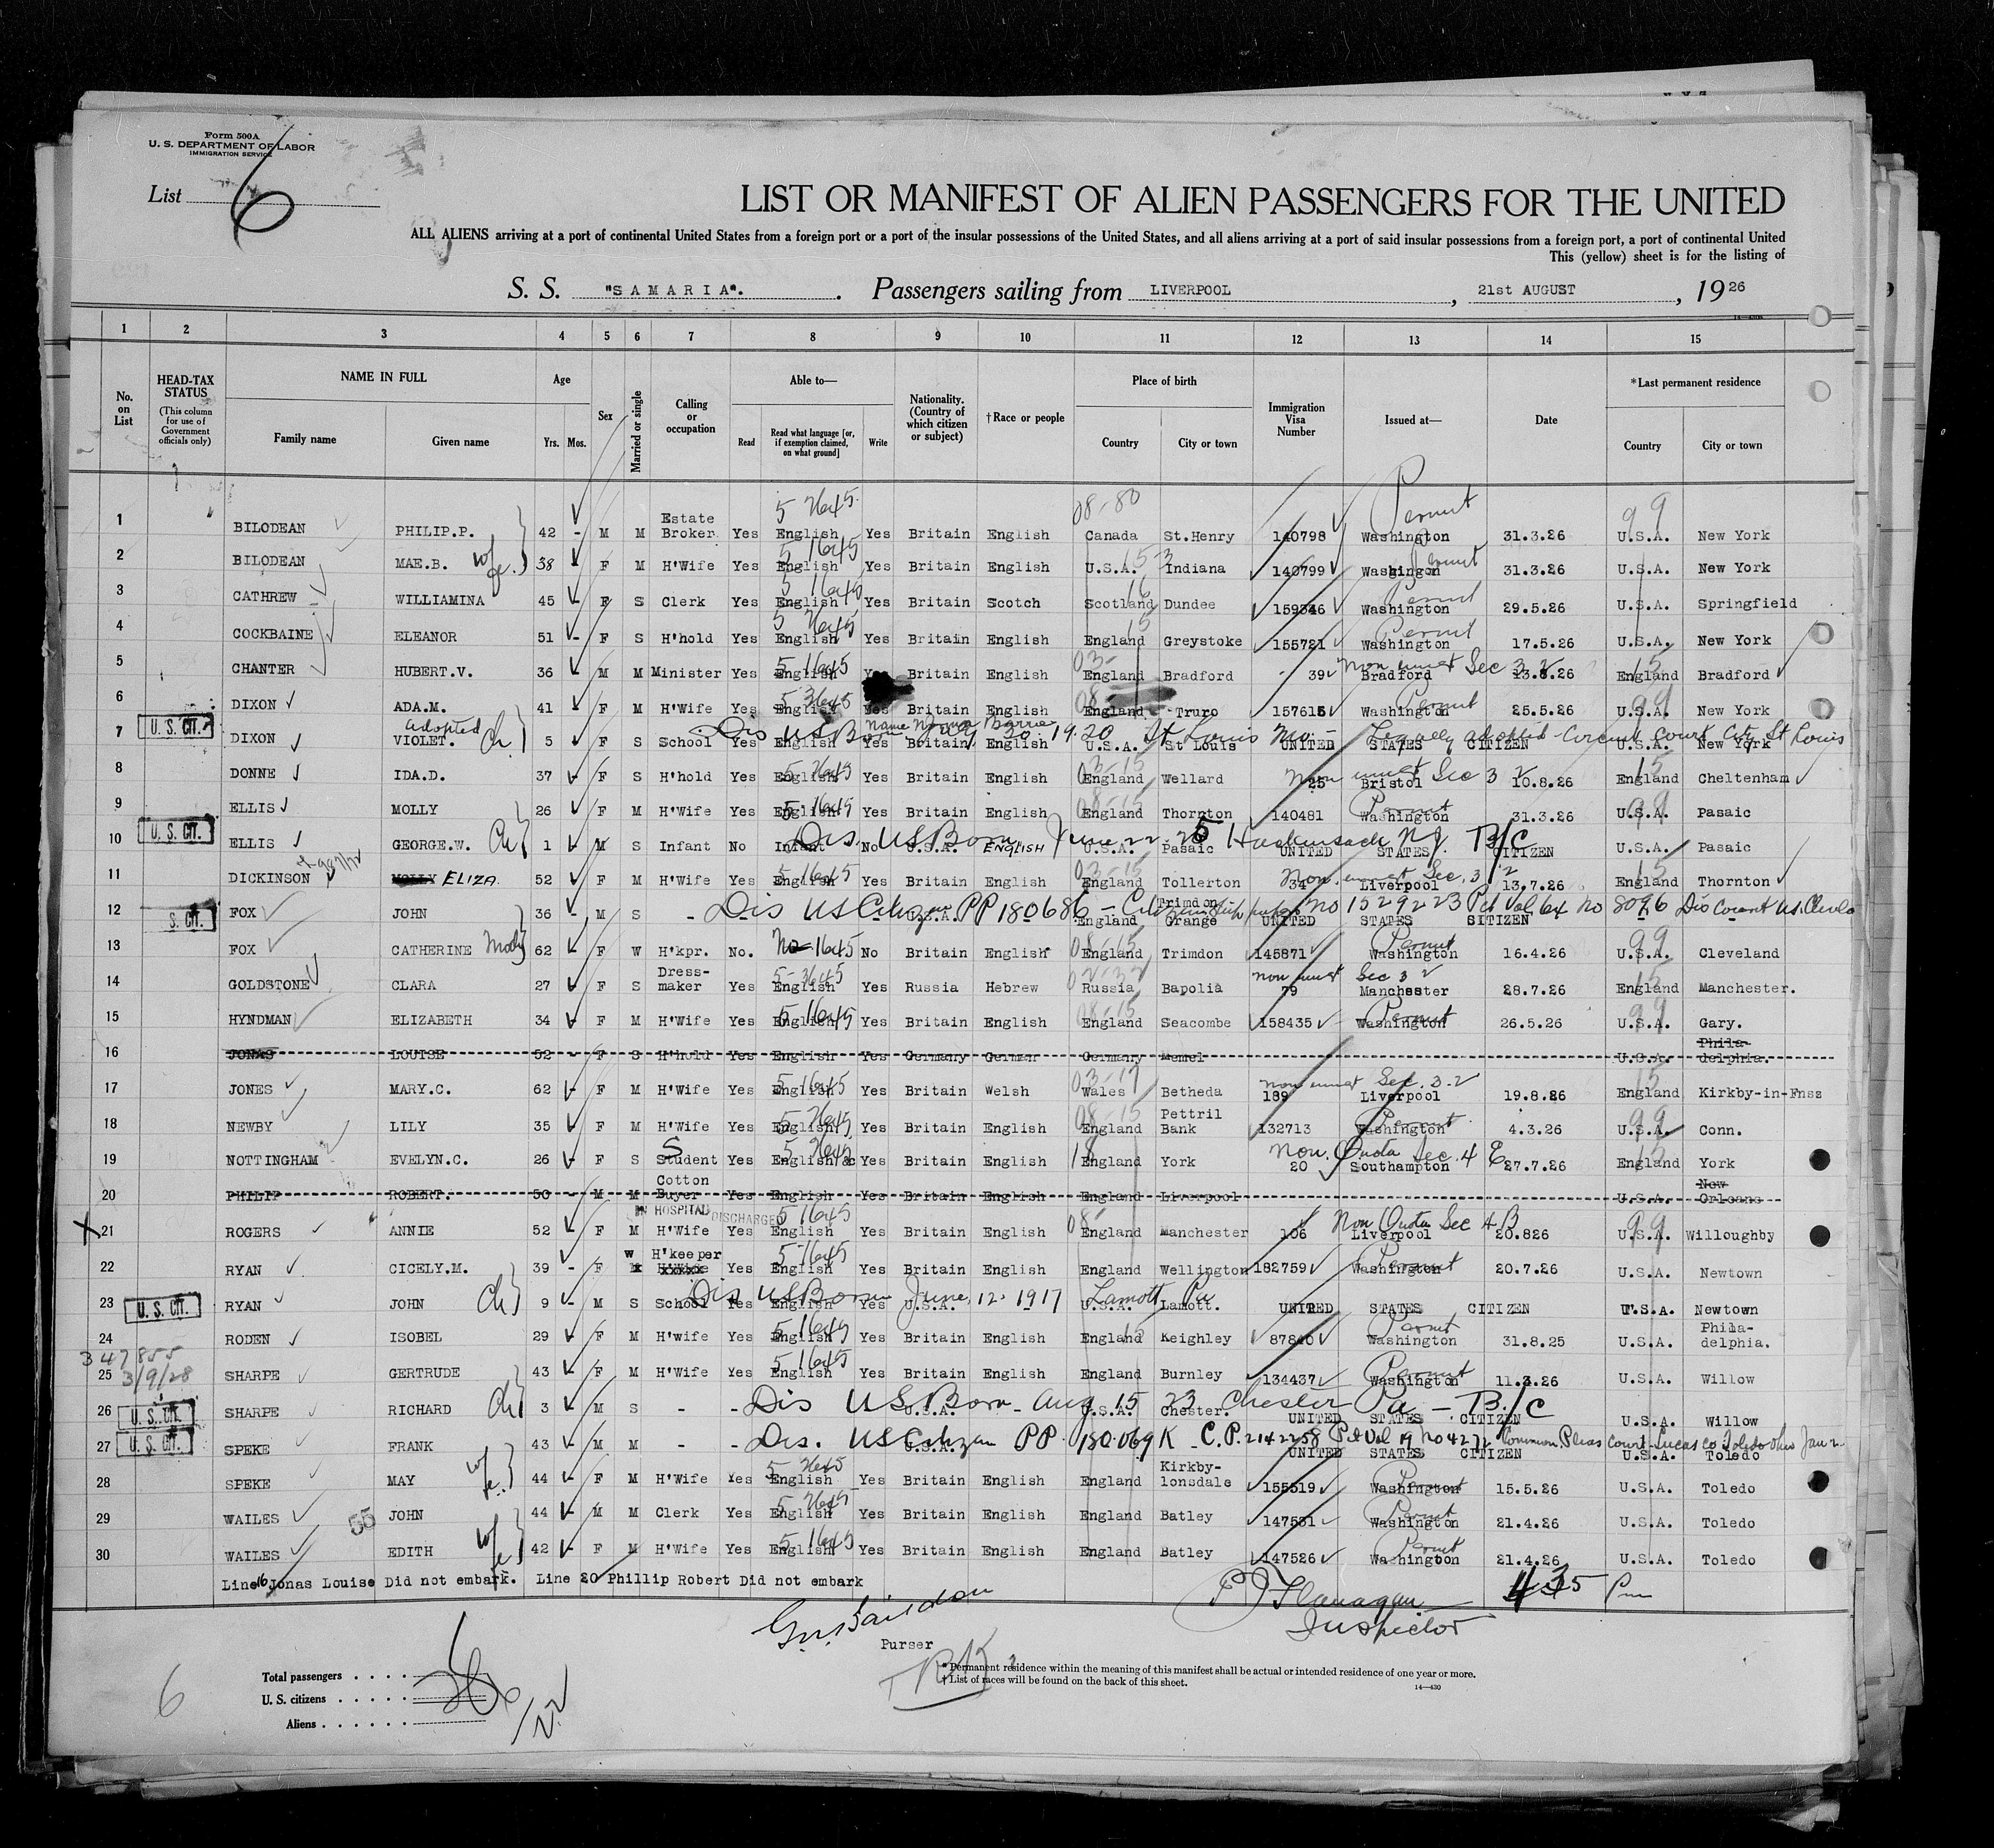 Form 500A
U. S. DEPARTMENT OF LABOR
IMMIGRATION SERVICE
List 6
LIST OR MANIFEST OF ALIEN PASSENGERS FOR THE UNITED
ALL ALIENS arriving at a port of continental United States from a foreign port or a port of the insular possessions of the United States, and all aliens arriving at a port of said insular possessions from a foreign port, a port of continental United
This (yellow) sheet is for the listing of
S. S. "SAMARIA". Passengers sailing from LIVERPOOL, 21st AUGUST, 1926
1 2 3 4 5 6 7 8 9 10 11 12 13 14 15
No. on List HEAD-TAX STATUS (This column for use of Government officials only) NAME IN FULL Family name Given name Age Yrs. Mos. Sex Married or single Calling or occupation Able to— Read Read what language [or, if exemption claimed, on what ground] Write Nationality. (Country of which citizen or subject) †Race or people Place of birth Country City or town Immigration Visa Number Issued at— Date *Last permanent residence Country City or town
1 BILODEAN PHILIP.P. 42 - M M Estate Broker Yes English Yes Britain English Canada St.Henry 140798 Washington Permit 31.3.26 U.S.A. New York
2 BILODEAN MAE.B. wfe. 38 - F M H'Wife Yes English Yes Britain English U.S.A. Indiana 140799 Washingon 31.3.26 U.S.A. New York
3 CATHREW WILLIAMINA 45 - F S Clerk Yes English Yes Britain Scotch Scotland Dundee 159346 Washington Permit 29.5.26 U.S.A. Springfield
4 COCKBAINE ELEANOR 51 - F S H'hold Yes English Yes Britain English England Greystoke 155721 Washington Permit 17.5.26 U.S.A. New York
5 CHANTER HUBERT.V. 36 M M Minister Yes English Britain English England Bradford 39 Bradford Sec 3 2 13.8.26 England Bradford
6 DIXON ADA.M. 41 F M H'Wife Yes English Yes Britain English England Truro 157615 Washington Permit 25.5.26 U.S.A. New York
7 U. S. CIT. DIXON Adopted VIOLET. Ch 5 F S School Yes English Yes Britain English U.S.A. St Louis UNITED STATES CITIZEN U.S.A. New York
Dis US Born July 30 1920 St Louis Mo. - Legally adopted - Circuit Court City St Louis
8 DONNE IDA.D. 37 - F S H'hold Yes English Yes Britain English England Wellard 25 Bristol Sec 3 2 10.8.26 England Cheltenham
9 ELLIS MOLLY 26 F M H'Wife Yes English Yes Britain English England Thornton 140481 Washington Permit 31.3.26 U.S.A. Pasaic
10 U. S. CIT. ELLIS GEORGE.W. Ch 1 M S Infant No Infant No U.S.A. ENGLISH U.S.A. Pasaic UNITED STATES CITIZEN U.S.A. Pasaic
Dis. US Born June 22. 25 Hackensack N.J. B/C
11 DICKINSON ELIZA. 52 F M H'Wife Yes English Yes Britain English England Tollerton 34 Liverpool Sec. 3/2 13.7.26 England Thornton
12 S. CIT. FOX JOHN 36 - M S - U.S.A. England Trimdon Grange UNITED STATES CITIZEN
Dis US Citizen PP 180686
13 FOX CATHERINE 62 F W H'kpr. No. No No Britain English England Trimdon 145871 Washington Permit 16.4.26 U.S.A. Cleveland
14 GOLDSTONE CLARA 27 F S Dress-maker Yes English Yes Russia Hebrew Russia Bapolia 79 Manchester Sec 3 2 28.7.26 England Manchester.
15 HYNDMAN ELIZABETH 34 F M H'Wife Yes English Yes Britain English England Seacombe 158435 Washington Permit 26.5.26 U.S.A. Gary.
16 JONAS LOUISE 52 - F S H'hold Yes English Yes Germany German Germany Memel U.S.A. Phila-delphia.
17 JONES MARY.C. 62 F M H'Wife Yes English Yes Britain Welsh Wales Betheda 189 Liverpool Sec. 3-2 19.8.26 England Kirkby-in-Fnsz
18 NEWBY LILY 35 F M H'Wife Yes English Yes Britain English England Pettril Bank 132713 Washington Permit 4.3.26 U.S.A. Conn.
19 NOTTINGHAM EVELYN.C. 26 F S Student Yes English &c Yes Britain English England York 20 Southampton Non. Quota Sec. 4 E 27.7.26 England York
20 PHILIP ROBERT. 50 - M M Cotton Buyer Yes English Yes Britain English England Liverpool U.S.A. New Orleans
IN HOSPITAL DISCHARGED
X 21 ROGERS ANNIE 52 F M H'Wife Yes English Yes Britain English England Manchester 106 Liverpool Non Quota Sec 4 B 20.826 U.S.A. Willoughby
22 RYAN CICELY.M. 39 - F W H'keeper Yes English Yes Britain English England Wellington 182759 Washington Permit 20.7.26 U.S.A. Newtown
23 U. S. CIT. RYAN JOHN Ch 9 - M S School Yes English Yes U.S.A. U.S.A. Lamott. UNITED STATES CITIZEN U.S.A. Newtown
Dis US Born June, 12. 1917 Lamott Pa
24 RODEN ISOBEL 29 F M H'wife Yes English Yes Britain English England Keighley 87840 Washington Permit 31.8.25 U.S.A. Phila-delphia.
347855
3/9/28
25 SHARPE GERTRUDE 43 F M H'Wife Yes English Yes Britain English England Burnley 134437 Washington Permit 11.3.26 U.S.A. Willow
26 U. S. CIT. SHARPE RICHARD Ch 3 M S - - U.S.A. - U.S.A. Chester. UNITED STATES CITIZEN U.S.A. Willow
Dis US Born Aug 15 23 Chester Pa - B/C
27 U. S. CIT. SPEKE FRANK 43 - M M - - U.S.A. UNITED STATES CITIZEN U.S.A. Toledo
Dis. US Citizen PP 180069K - C.P. 2142258 Pet Vol 19 No 4272 Common Pleas Court Lucas Co Toledo Ohio Jan 2
28 SPEKE MAY wfe. 44 F M H'Wife Yes English Yes Britain English England Kirkby-lonsdale 155519 Washington Permit 15.5.26 U.S.A. Toledo
29 WAILES 55 JOHN 44 M M Clerk Yes English Yes Britain English England Batley 147531 Washington Permit 21.4.26 U.S.A. Toledo
30 WAILES EDITH wfe 42 - F M H'Wife Yes English Yes Britain English England Batley 147526 Washington Permit 21.4.26 U.S.A. Toledo
Line 16 Jonas Louise Did not embark. Line 20 Phillip Robert Did not embark
P J Flanagan 4 35 Pm
Inspector
Purser
*Permanent residence within the meaning of this manifest shall be actual or intended residence of one year or more.
†List of races will be found on the back of this sheet.
14—430
6
Total passengers
U. S. citizens
Aliens